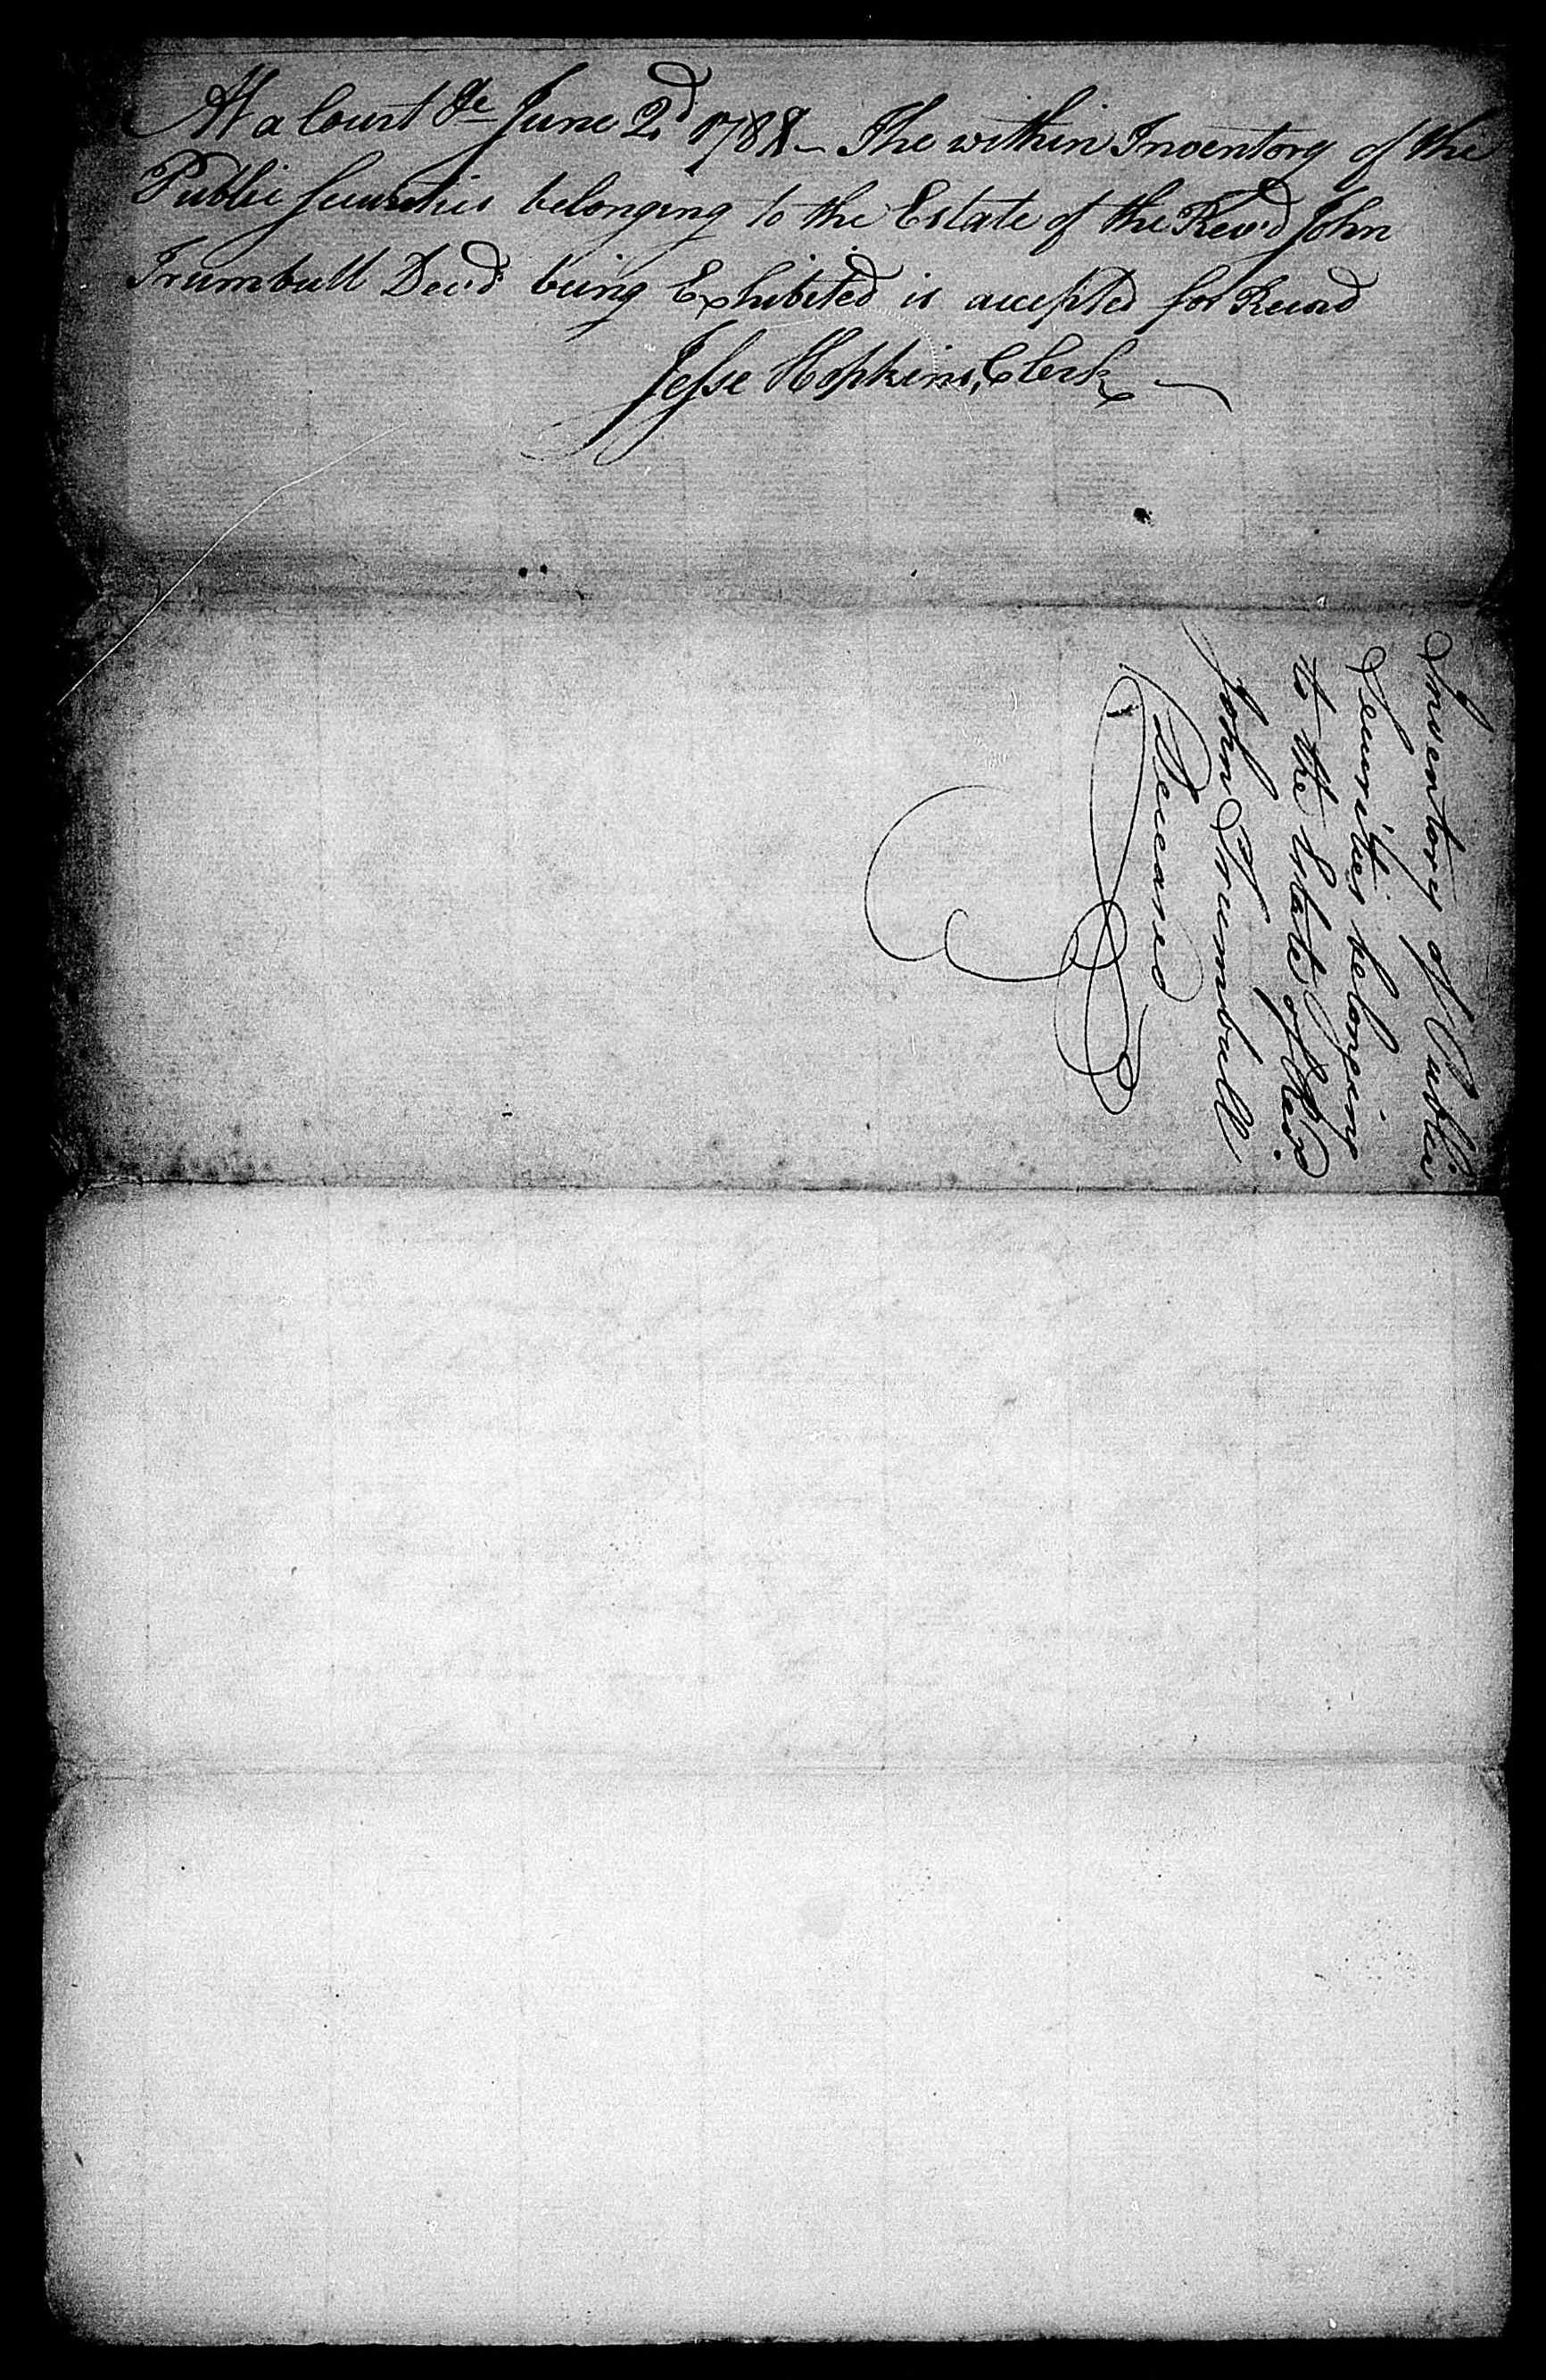 At a Court &c June 2d 1788 - The within Inventory of the
Public Securities belonging to the Estate of the Revd John
Trumbull Decd being Exhibited is accepted for Record
Jesse Hopkins, Clerk
Inventory of Public
Securities belonging
to the Estate of Revd
John Trumbull
Deceased